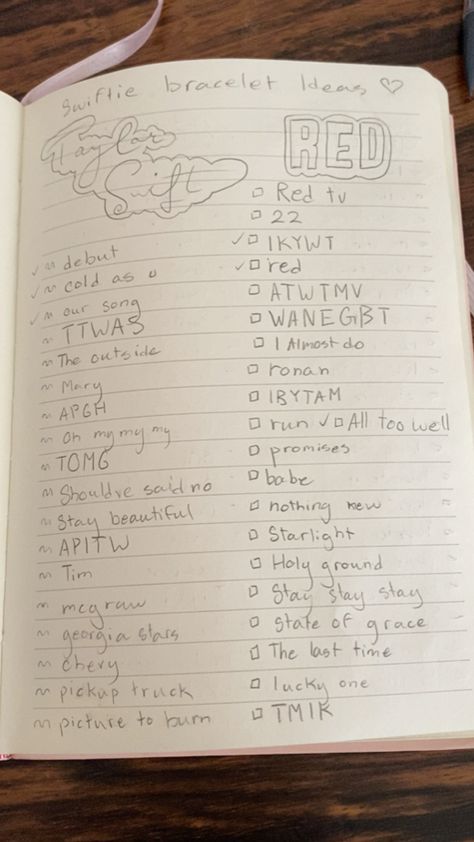 Swiftie bracelet Ideas ♡
Taylor
Swift
✓ ~ debut
✓ ~ cold as u
✓ ~ our song
~ TTWAS
~ The outside
~ Mary
~ APGH
~ Oh my my my
~ TOMG
~ Shouldve said no
~ Stay beautiful
~ APITW
~ Tim
~ mcgraw
~ georgia stars
~ chevy
~ pickup truck
~ picture to burn
RED
□ Red tv
□ 22
✓ □ IKYWT
✓ □ red
□ ATWTMV
□ WANEGBT
□ I Almost do
□ ronan
□ IBYTAM
□ run ✓ □ All too well
□ promises
□ babe
□ nothing new
□ Starlight
□ Holy ground
□ Stay stay stay
□ State of grace
□ The last time
□ lucky one
□ TMIK